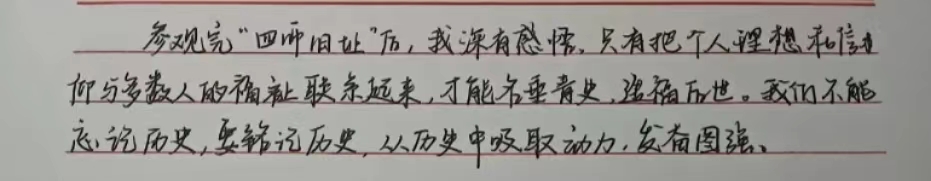 参观完“四师旧址”后，我深有感悟，只有把个人理想和信
仰与多数人的福祉联系起来，才能名垂青史，造福后世。我们不能
忘记历史，要铭记历史，从历史中吸取动力，发奋图强、